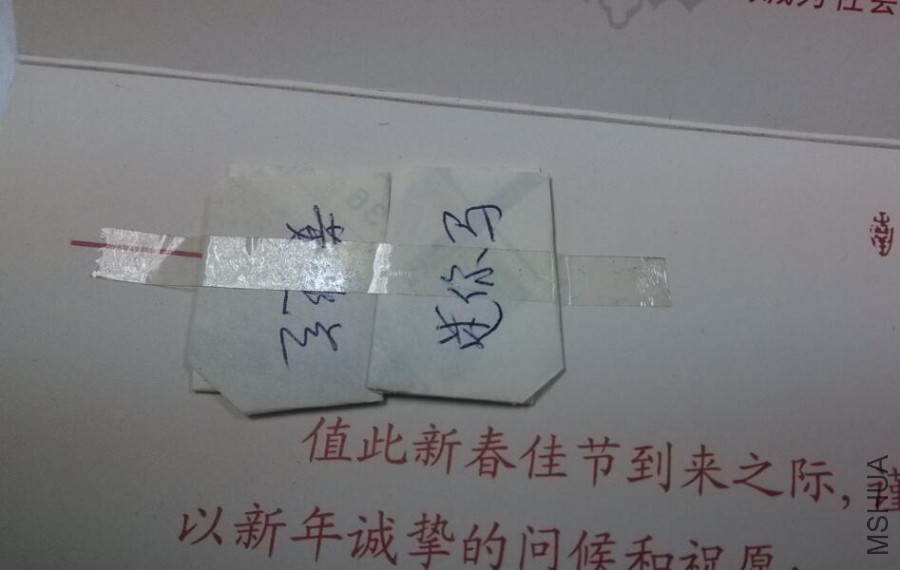 成为社会
迷你马
值此新春佳节到来之际，谨
以新年诚挚的问候和祝愿，
MSHUA